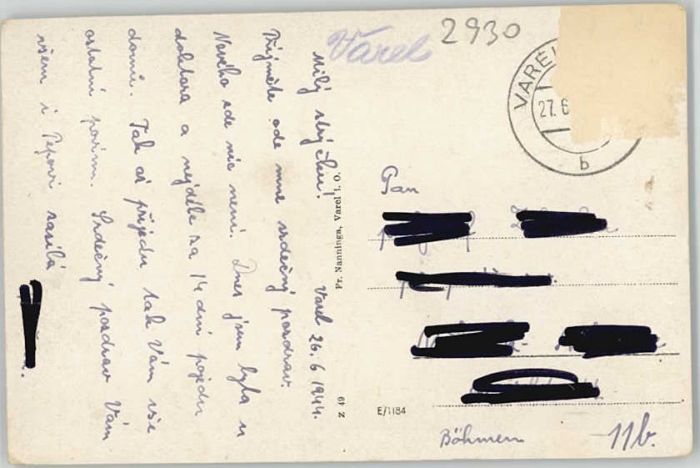 Varel
2930
VAREL
27.6
b
Varel 26.6 1944.
Milý strýčku!
Přijměte ode mne srdečný pozdrav.
Nového zde nic není. Dnes jsem byla u
doktora a nejdéle za 14 dní pojedu
domů. Tak až přijedu tak Vám vše
ostatní povím. Srdečný pozdrav Vám
všem i Pepovi zasílá
Pan
Böhmen
11b.
E/1184
Fr. Nauninga, Varel i. O.
Z 49